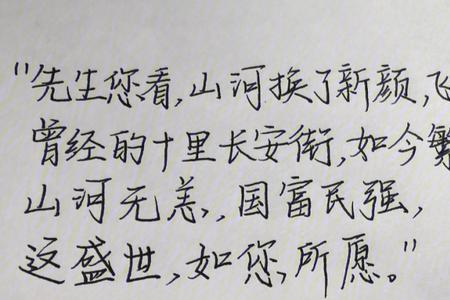 "先生您看,山河换了新颜,飞
曾经的十里长安街,如今繁
山河无恙,国富民强,
这盛世,如您,所愿。"